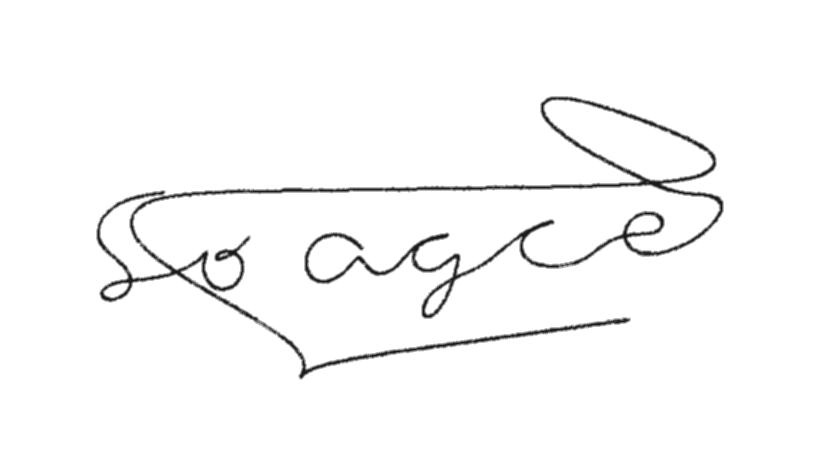 So agce